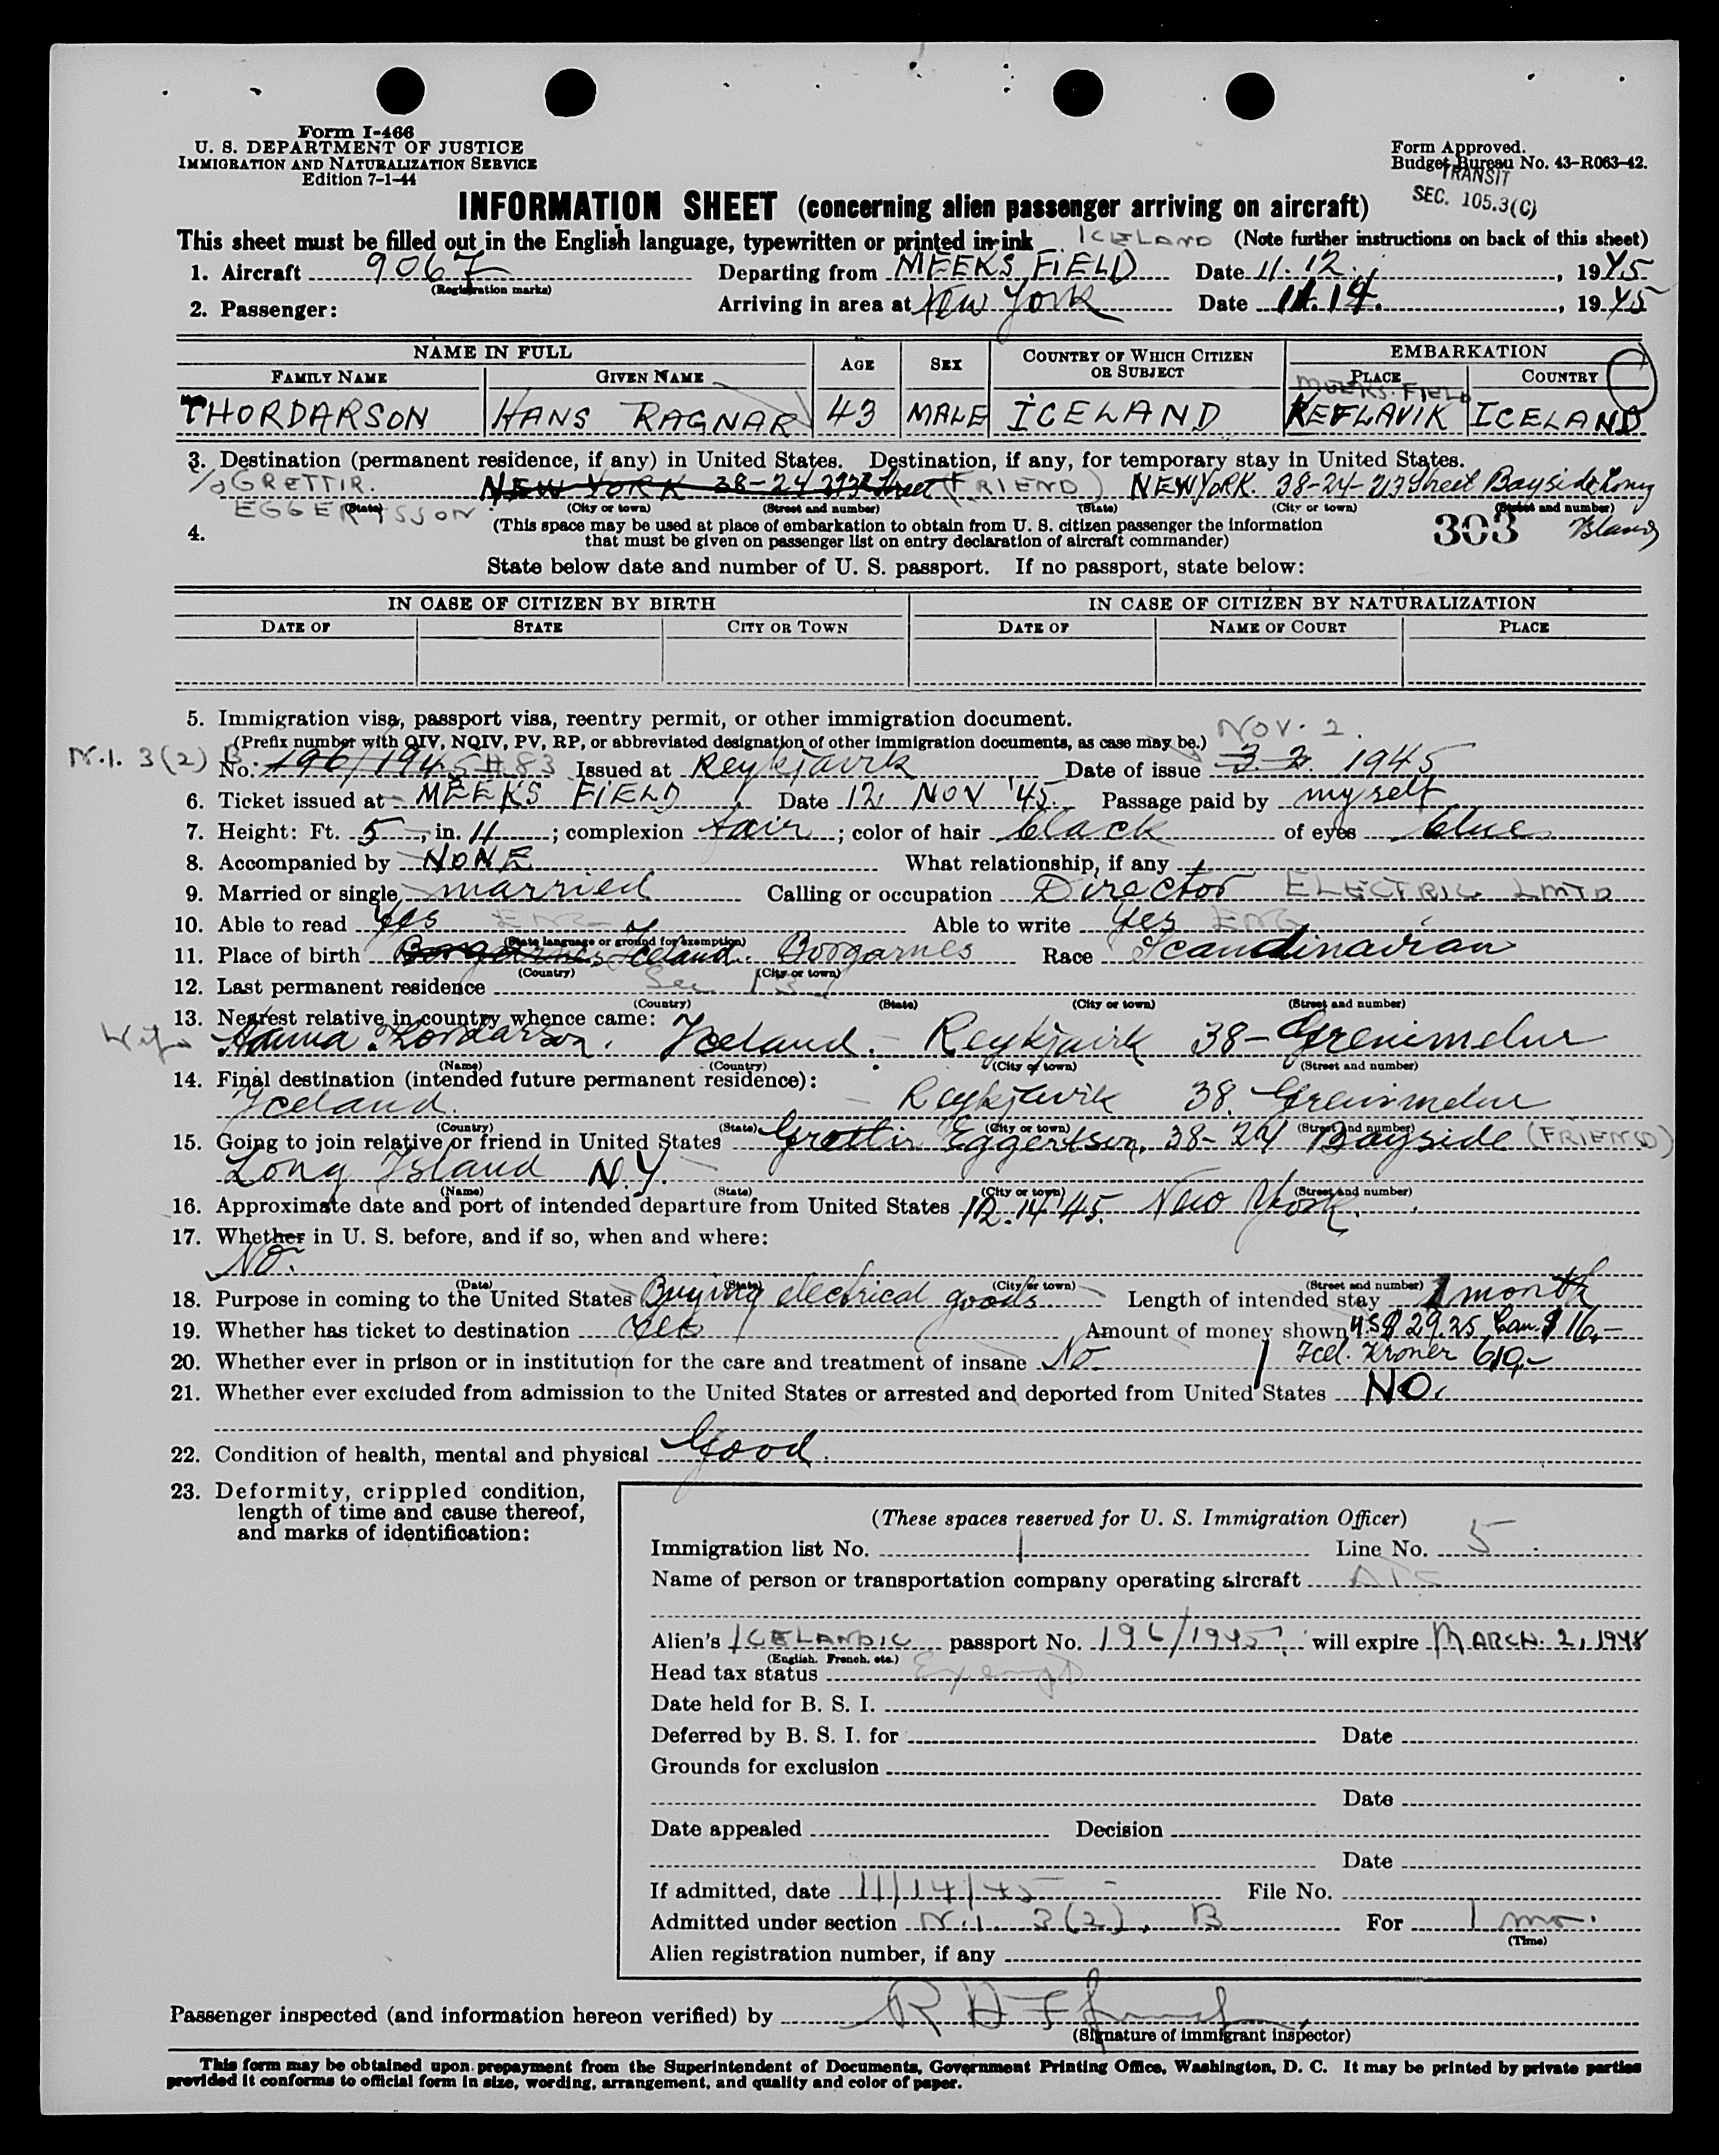 Form I-466
U. S. DEPARTMENT OF JUSTICE
IMMIGRATION AND NATURALIZATION SERVICE
Edition 7-1-44
Form Approved.
Budget Bureau No. 43-R063-42.
TRANSIT
SEC. 105.3(C)
INFORMATION SHEET (concerning alien passenger arriving on aircraft)
This sheet must be filled out in the English language, typewritten or printed in ink ICELAND (Note further instructions on back of this sheet)
1. Aircraft 9067 Departing from MEEKS FIELD Date 11.12. , 1945
(Registration marks)
2. Passenger: Arriving in area at New York Date 11.14. , 1945
NAME IN FULL AGE SEX COUNTRY OF WHICH CITIZEN OR SUBJECT EMBARKATION
FAMILY NAME GIVEN NAME PLACE COUNTRY
MEEKS FIELD
THORDARSON HANS RAGNAR 43 MALE ICELAND KEFLAVIK ICELAND
3. Destination (permanent residence, if any) in United States. Destination, if any, for temporary stay in United States.
c/o GRETTIR. NEW YORK 38-24 213 Street (FRIEND) NEW YORK. 38-24-213 Street Bayside Long
EGGERTSSON. (State) (City or town) (Street and number) (State) (City or town) (Street and number)
Island
303
4. (This space may be used at place of embarkation to obtain from U. S. citizen passenger the information
that must be given on passenger list on entry declaration of aircraft commander)
State below date and number of U. S. passport. If no passport, state below:
IN CASE OF CITIZEN BY BIRTH IN CASE OF CITIZEN BY NATURALIZATION
DATE OF STATE CITY OR TOWN DATE OF NAME OF COURT PLACE
5. Immigration visa, passport visa, reentry permit, or other immigration document.
(Prefix number with QIV, NQIV, PV, RP, or abbreviated designation of other immigration documents, as case may be.) NOV. 2.
N.I. 3(2) B No. 196/1945 #83 Issued at Reykjavik Date of issue 3.2. 1945
6. Ticket issued at MEEKS FIELD Date 12. NOV '45. Passage paid by myself
7. Height: Ft. 5, in. 11; complexion fair; color of hair black of eyes blue
8. Accompanied by NONE What relationship, if any
9. Married or single married Calling or occupation Director ELECTRIC LMTD
10. Able to read Yes ENG Able to write Yes ENG
(State language or ground for exemption)
11. Place of birth Borgarnes Iceland. Borgarnes Race Scandinavian
(Country) (City or town)
12. Last permanent residence See 13
(Country) (State) (City or town) (Street and number)
13. Nearest relative in country whence came:
Wife Hanna Thordarson. Iceland. - Reykjavik 38-Grenimelur
(Name) (Country) (City or town) (Street and number)
14. Final destination (intended future permanent residence):
Iceland. - Reykjavik 38. Grenimelur
(Country) (State) (City or town) (Street and number)
15. Going to join relative or friend in United States Grettir Eggertson, 38-24 Bayside (FRIEND)
Long Island N.Y.
(Name) (State) (City or town) (Street and number)
16. Approximate date and port of intended departure from United States 12.14 '45. New York.
17. Whether in U. S. before, and if so, when and where:
No.
(Date) (State) (City or town) (Street and number)
18. Purpose in coming to the United States Buying electrical goods Length of intended stay 1 month
19. Whether has ticket to destination Yes Amount of money shown U.S $ 29.25 Can. $ 16,-
20. Whether ever in prison or in institution for the care and treatment of insane No Icel. Kroner 610,-
21. Whether ever excluded from admission to the United States or arrested and deported from United States NO.
22. Condition of health, mental and physical Good.
23. Deformity, crippled condition,
length of time and cause thereof,
and marks of identification:
(These spaces reserved for U. S. Immigration Officer)
Immigration list No. 1 Line No. 5
Name of person or transportation company operating aircraft ATC
Alien's ICELANDIC passport No. 196/1945 will expire MARCH. 2, 1948
(English. French. etc.)
Head tax status Exempt
Date held for B. S. I.
Deferred by B. S. I. for Date
Grounds for exclusion
Date
Date appealed Decision
Date
If admitted, date 11/14/45 File No.
Admitted under section N.I. 3(2), B For 1 mo.
(Time)
Alien registration number, if any
Passenger inspected (and information hereon verified) by
(Signature of immigrant inspector)
This form may be obtained upon prepayment from the Superintendent of Documents, Government Printing Office, Washington, D. C. It may be printed by private parties
provided it conforms to official form in size, wording, arrangement, and quality and color of paper.